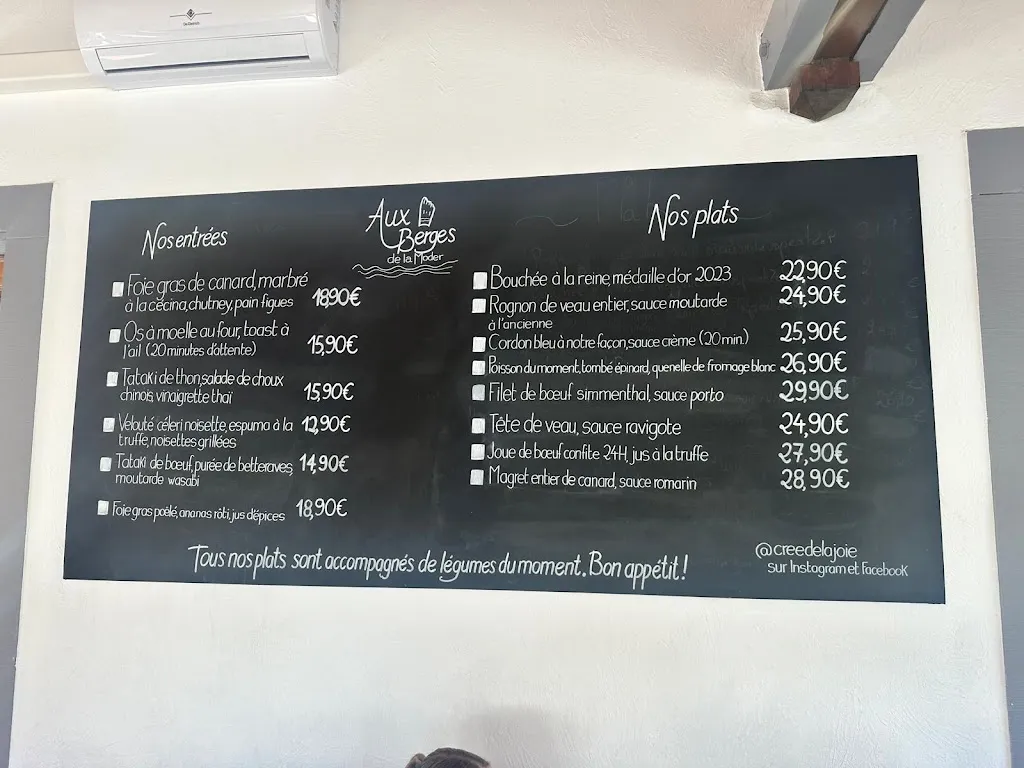 Nos entrées
Foie gras de canard, marbré
à la cécina, chutney, pain figues 18,90€
Os à moelle au four, toast à
l'ail (20 minutes d'attente) 15,90€
Tataki de thon, salade de choux
chinois, vinaigrette thaï 15,90€
Velouté céleri noisette, espuma à la 12,90€
truffe, noisettes grillées
Tataki de bœuf, purée de betteraves, 14,90€
moutarde wasabi
Foie gras poêlé, ananas rôti, jus d'épices 18,90€
Aux
Berges
de la Moder
Nos plats
Bouchée à la reine, médaille d'or 2023 22,90€
Rognon de veau entier, sauce moutarde 24,90€
à l'ancienne
Cordon bleu à notre façon, sauce crème (20 min.) 25,90€
Poisson du moment, tombé épinard, quenelle de fromage blanc 26,90€
Filet de bœuf simmenthal, sauce porto 29,90€
Tête de veau, sauce ravigote 24,90€
Joue de bœuf confite 24H, jus à la truffe 27,90€
Magret entier de canard, sauce romarin 28,90€
Tous nos plats sont accompagnés de légumes du moment. Bon appétit!
@creedelajoie
sur Instagram et Facebook